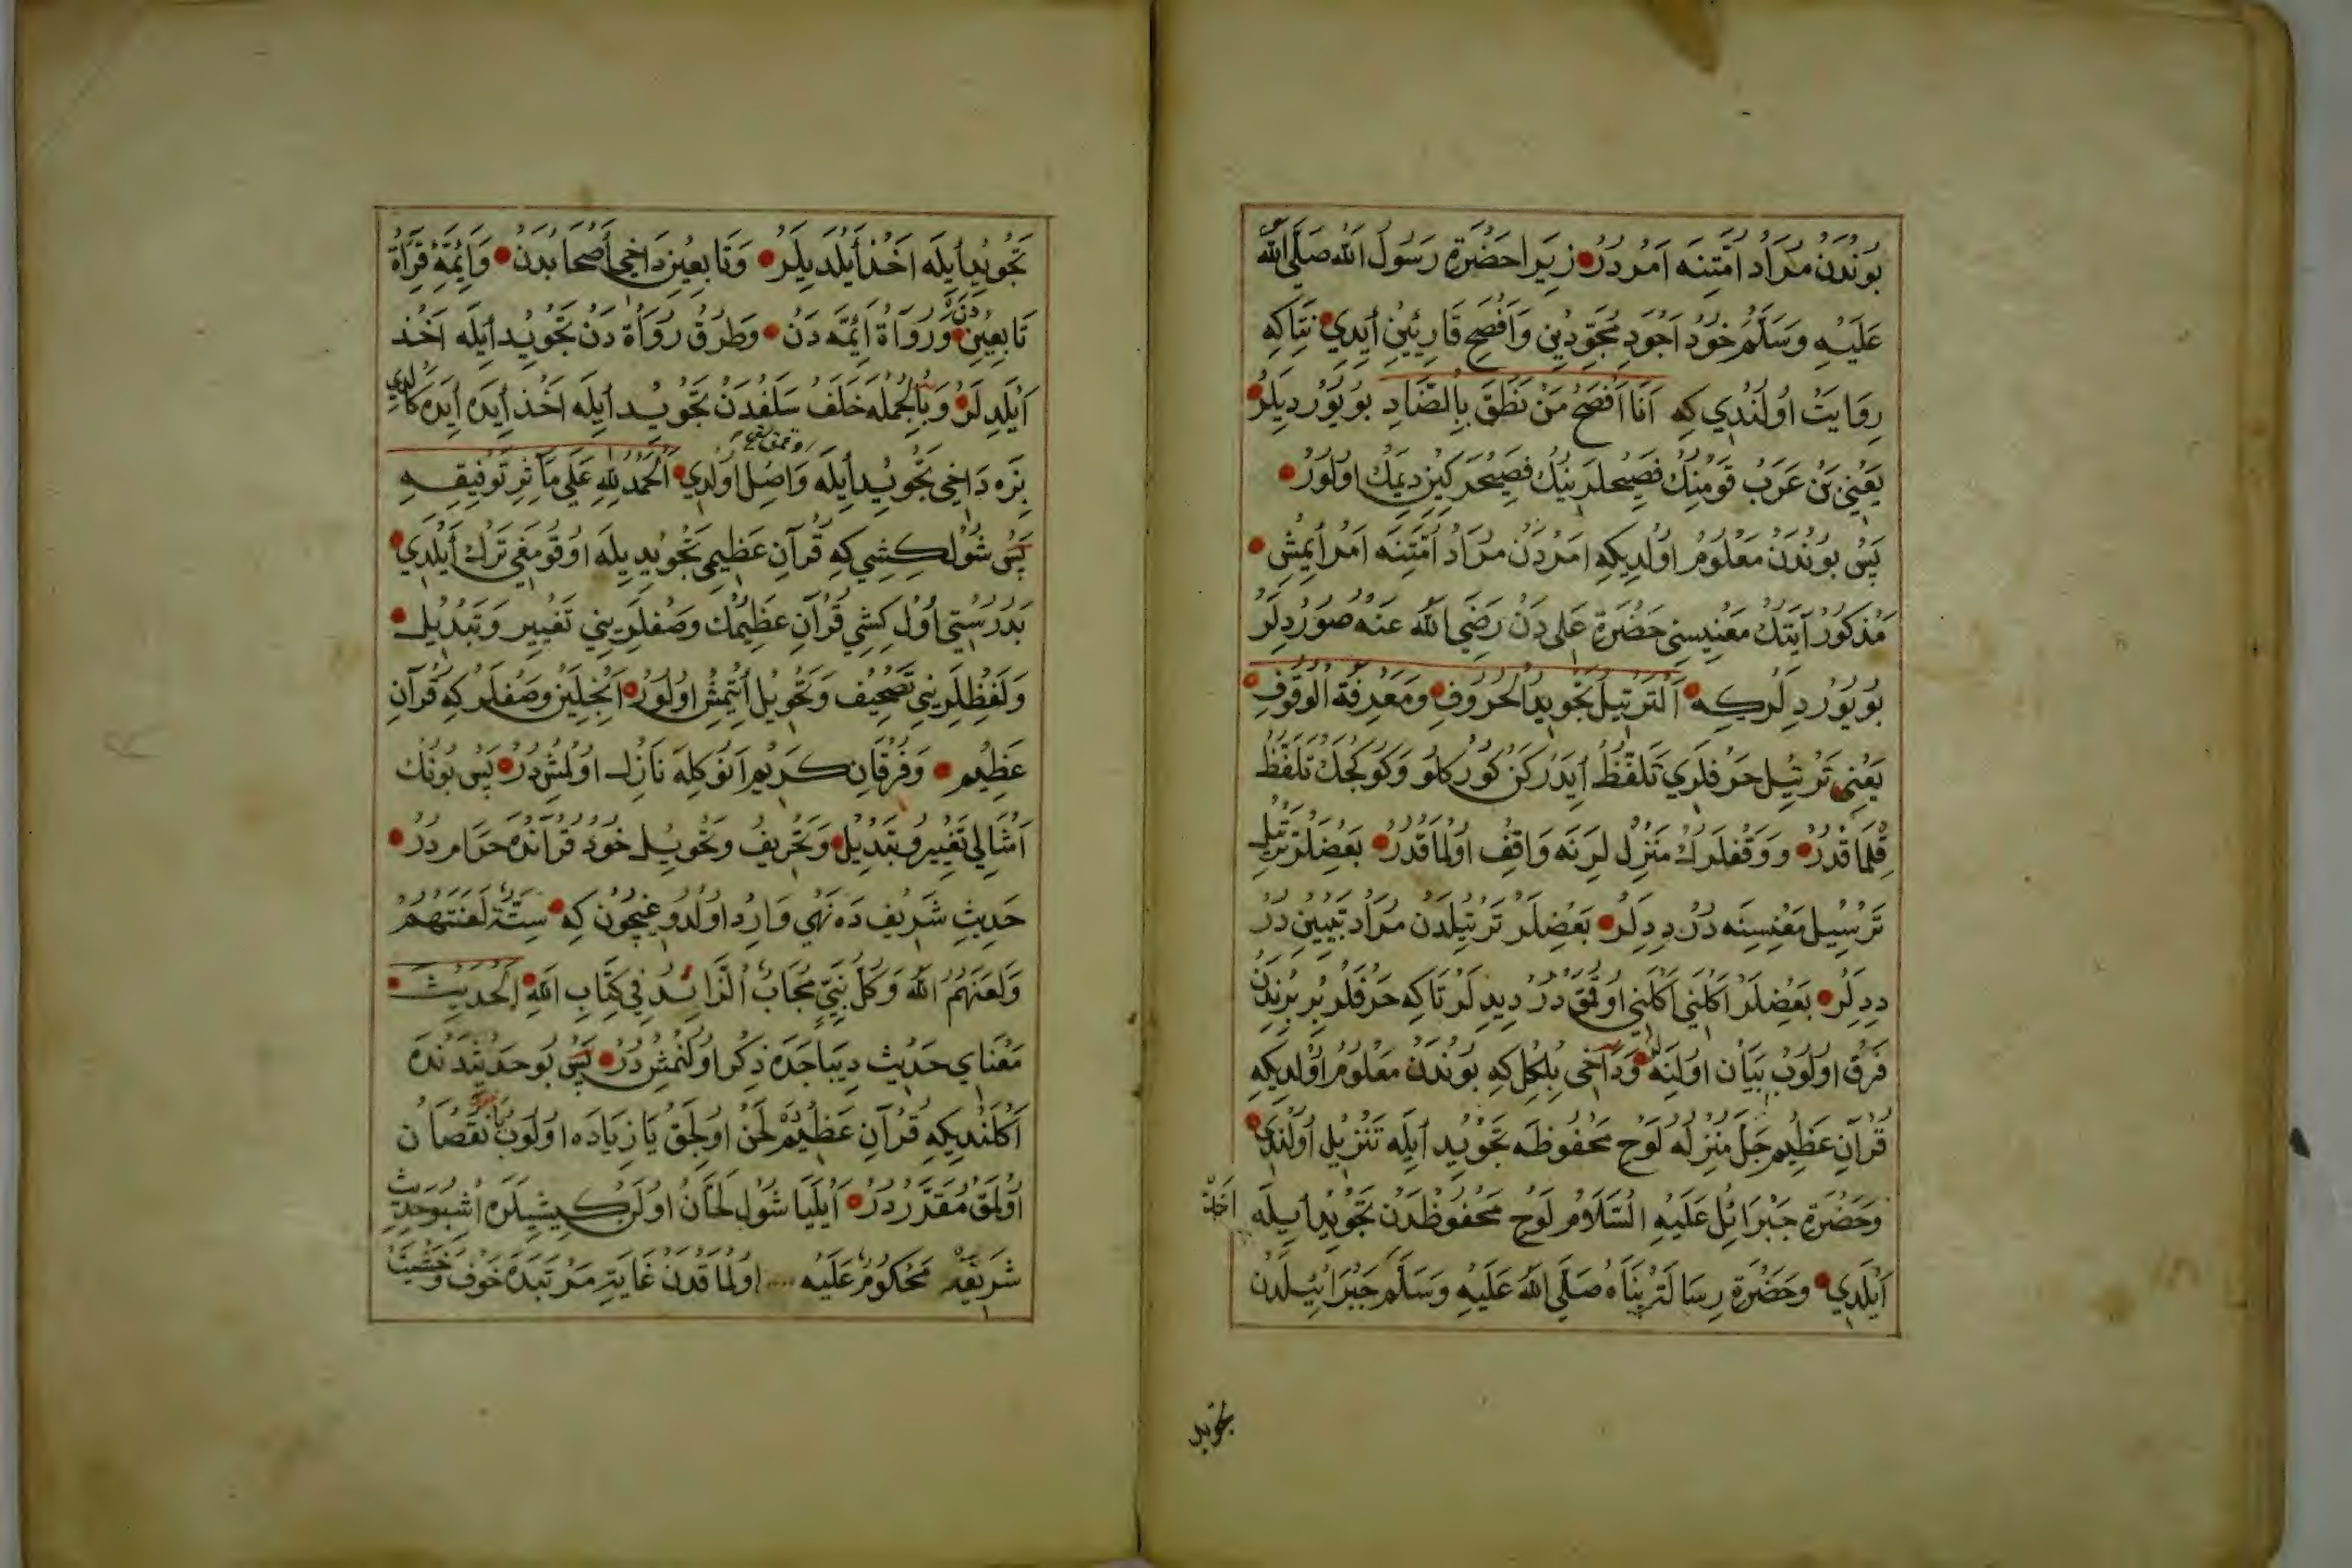 بُونْدَنْ مُرَادْ اُمَّتِنَه اَمْر دُرْ زِيرَا حَضْرَةِ رَسُولُ الله صَلَّى اللهُ
عَلَيْهِ وَسَلَّمْ خُودْ اَجْوَدِ مُجَوِّدِينِ وَاَفْصَحِ قَارِئِينِ اَيْدِي نِتَاكِه
رِوَايَتْ اُولُنْدِي كِه اَنَا اَفْصَحُ مَنْ نَطَقَ بِالضَّادِ بُويُورْدِيلَرْ
يَعْنِي بَنْ عَرَبْ قَوْمِنِكْ فَصِيحْلَرِينِكْ فَصِيحْرَكِينْ دِيمَكْ اُولُورْ
پَسْ بُونْدَنْ مَعْلُومْ اُولْدِيكِه اَمْردَنْ مُرَادْ اُمَّتِنَه اَمْر اِيمِشْ
مَذْكُورْ آيَتِكْ مَعْنِيسِنِي حَضْرَةِ عَلِي دَنْ رَضِيَ اللهُ عَنْهُ صُورْدِلَرْ
بُويُورْدِلَرْكِه اَلتَّرْتِيلُ تَجْوِيدُ الْحُرُوفِ وَمَعْرِفَةُ الْوُقُوفِ
يَعْنِي تَرْتِيلْ حَرْفلَرِي تَلَفُّظْ اِيدَرْكَنْ كُورْكلُو وَكُوكْجَكْ تَلَفُّظْ
قِلْمَاقْدُرْ وَوَقْفلَرِكْ مَنْزِلْ لَرِنَه وَاقِفْ اُولْمَاقْدُرْ بَعْضِلَرْ تَرْتِيلْ
تَرْسِيلْ مَعْنِسِنَه دُرْ دِدِلَرْ بَعْضِلَرْ تَرْتِيلدَنْ مُرَادْ تَبْيِينْ دُرْ
دِدِلَرْ بَعْضِلَرْ اَكْلَنِي اَكْلَنِي اُوقُمَقْ دُرْ دِيدِلَرْ تَاكِه حَرْفلَرْ بِرْ بِرِنْدَنْ
فَرْقْ اُولُوبْ بَيَانْ اُولِنَه وَدَاخِي بِلْكِلْ كِه بُونْدَنْ مَعْلُومْ اُولْدِيكِه
قُرْآنِ عَظِيمْ جَلَّ مُنْزِلُهُ لَوْحِ مَحْفُوظَه تَجْوِيدْ اِيلَه تَنْزِيلْ اُولُنْدِي
وَحَضْرَةِ جَبْرَائِلْ عَلَيْهِ السَّلَامْ لَوْحِ مَحْفُوظْدَنْ تَجْوِيدْ اِيلَه اَخْذْ
اَيْلَدِي وَحَضْرَةِ رِسَالَتْپَنَاهْ صَلَّى اللهُ عَلَيْهِ وَسَلَّمْ جَبْرَائِيلْدَنْ
تجويد
تَجْوِيدْ اِيلَه اَخْذْ اَيْلَدِيلَرْ وَتَابِعِينْ دَاخِي اَصْحَابْدَنْ وَاَئِمَّةِ قِرَاةْ
تَابِعِينْدَنْ وَرُوَاةْ اَئِمَّه دَنْ وَطُرُقْ رُوَاةْ دَنْ تَجْوِيدْ اِيلَه اَخْذْ
اَيْلَدِلَرْ وَبِالْجُمْلَه خَلَفْ سَلَفْدَنْ تَجْوِيدْ اِيلَه اَخْذْ اِيدَه اِيدَه كَلْدِي
بِزَه دَاخِي تَجْوِيدْ اِيلَه وَاصِلْ اُولْدِي اَلْحَمْدُ لِلّٰهِ عَلَى مَآثِرِ تَوْفِيقِهِ
پَسْ شُولْ كِشِي كِه قُرْآنِ عَظِيمِي تَجْوِيدِيلَه اُوقُومَغِي تَرْكْ اَيْلَدِي
بَدُرُسْتِي اُولْ كِشِي قُرْآنِ عَظِيمُكْ وَصْفلَرِينِي تَغْيِيرْ وَتَبْدِيلْ
وَلَفْظِلَرِينِي تَصْحِيفْ وَتَحْوِيلْ اِتْمِشْ اُولُورْ اَنْجِلِينْ وَصْفلَرْ كِه قُرْآنِ
عَظِيمْ وَفُرْقَانِ كَرِيمْ اَنُوكِلَه نَازِلْ اُولْمِشْ دُرْ پَسْ بُونُكْ
اَمْثَالِي تَغْيِيرْ وَتَبْدِيلْ وَتَحْرِيفْ وَتَحْوِيلْ خُودْ قُرْآنْدَه حَرَامْ دُرْ
حَدِيثِ شَرِيفْ دَه نَهْي وَارِدْ اُولْدُوغِيچُونْ كِه سِتَّةٌ لَعَنْتُهُمْ
وَلَعَنَهُمُ اللهُ وَكُلُّ نَبِيٍّ مُجَابٌ اَلزَّائِدُ فِي كِتَابِ اللهِ اَلْحَدِيثْ
مَعْنَايِ حَدِيثْ دِيبَاجَدَه ذِكْرْ اُولُنْمِشْ دُرْ پَسْ بُو حَدِيثْدَنْدَه
اَكْلَنْدِيكِه قُرْآنِ عَظِيمْدَه لَحْنْ اُولِجَقْ يَا زِيَادَه اُولُوبْ يَا نُقْصَانْ
اُولْمَقْ مُقَرَّرْدُرْ اَيْلَيَا شُولْ لَحَّانْ اُولَنْ كِيشِيلَرَه اُشْبُو حَدِيثِ
شَرِيفْلَه مَحْكُومْ عَلَيْهِ اُولْمَاقْدَنْ غَايَتِ مَرْتَبَدَه خَوْف وَخَشْيَتْ